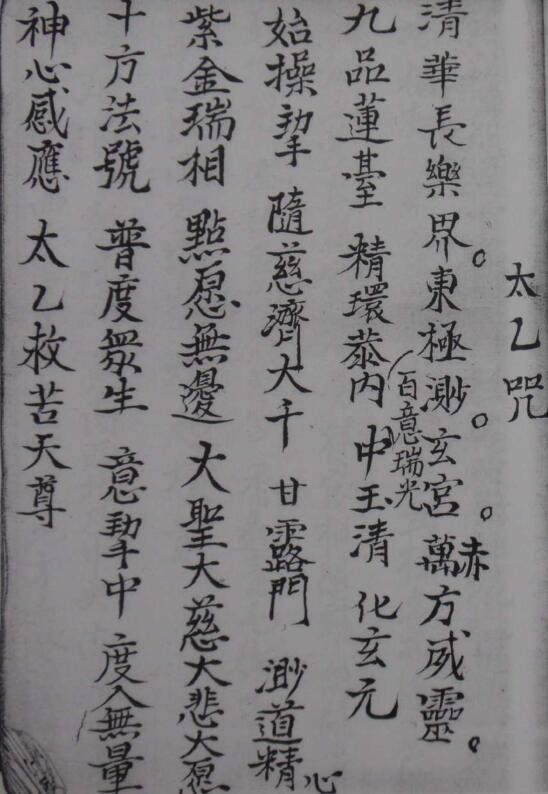 太乙咒
清華長樂界。東極渺。玄宮。萬赤方威靈。
九品蓮臺 精環恭內百意瑞光中玉清 化玄元
始操挈 隨慈濟大千 甘露門 渺道精心
紫金瑞相 點愿無邊 大聖大慈大悲大愿
十方法號 普度眾生 意挈中 度入無量
神心感應 太乙救苦天尊